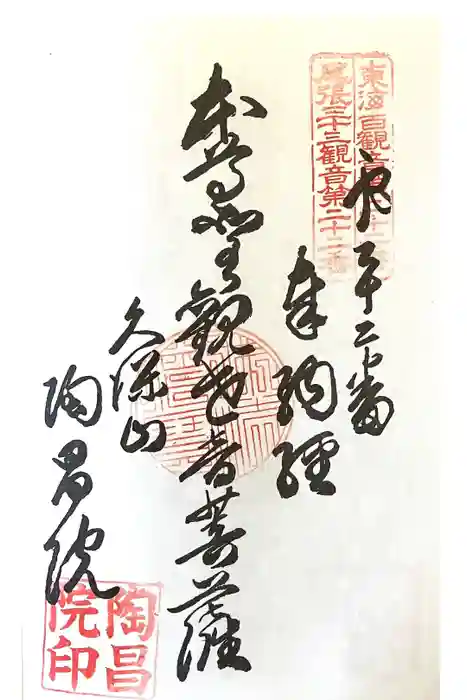 東海百観音
尾張三十三観音第二十二番
二十二番
奉納経
本尊聖観世音菩薩
久保山
陶昌院
陶昌
院印